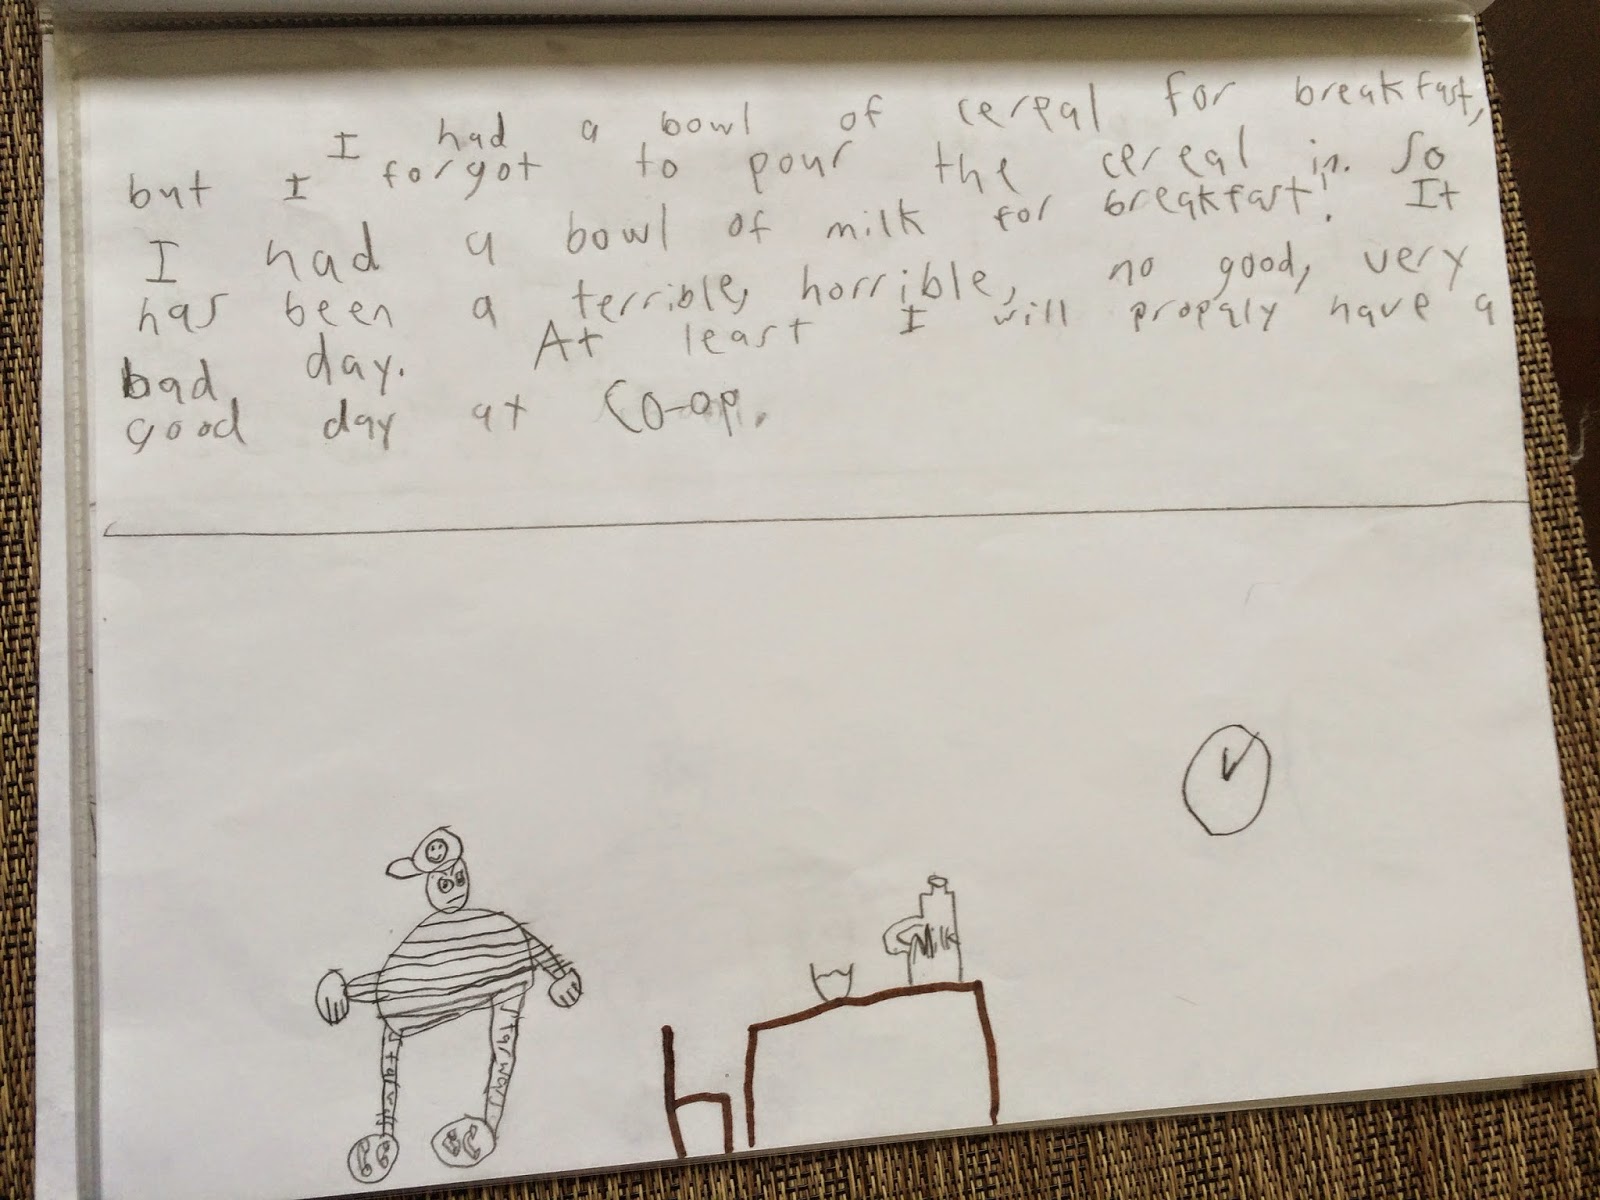 I had a bowl of cereal for breakfast,
but I forgot to pour the cereal in. So
I had a bowl of milk for breakfast! It
has been a terrible, horrible, no good, very
bad day. At least I will propaly have a
good day at Co-op.
Milk
starwars